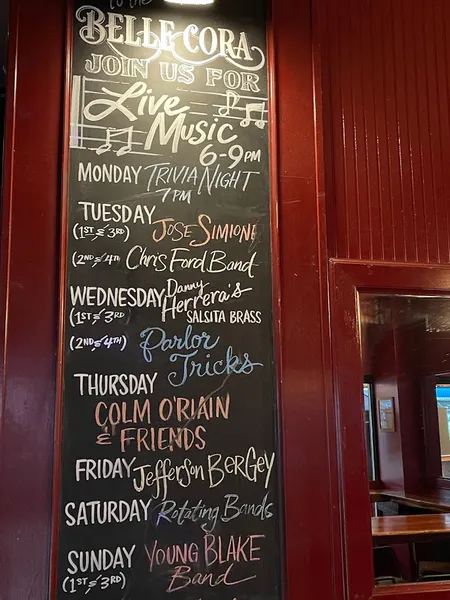 to the
BELLE CORA
JOIN US FOR
Live
Music
6-9PM
MONDAY TRIVIA NIGHT
7 PM
TUESDAY
(1ST & 3RD) JOSE SIMIONI
(2ND & 4TH) Chris Ford Band
WEDNESDAY Danny
Herrera's
(1ST & 3RD) SALSITA BRASS
(2ND & 4TH) Parlor
Tricks
THURSDAY
COLM O'RIAIN
& FRIENDS
FRIDAY Jefferson BerGey
SATURDAY Rotating Bands
SUNDAY YOUNG BLAKE
(1ST & 3RD) Band